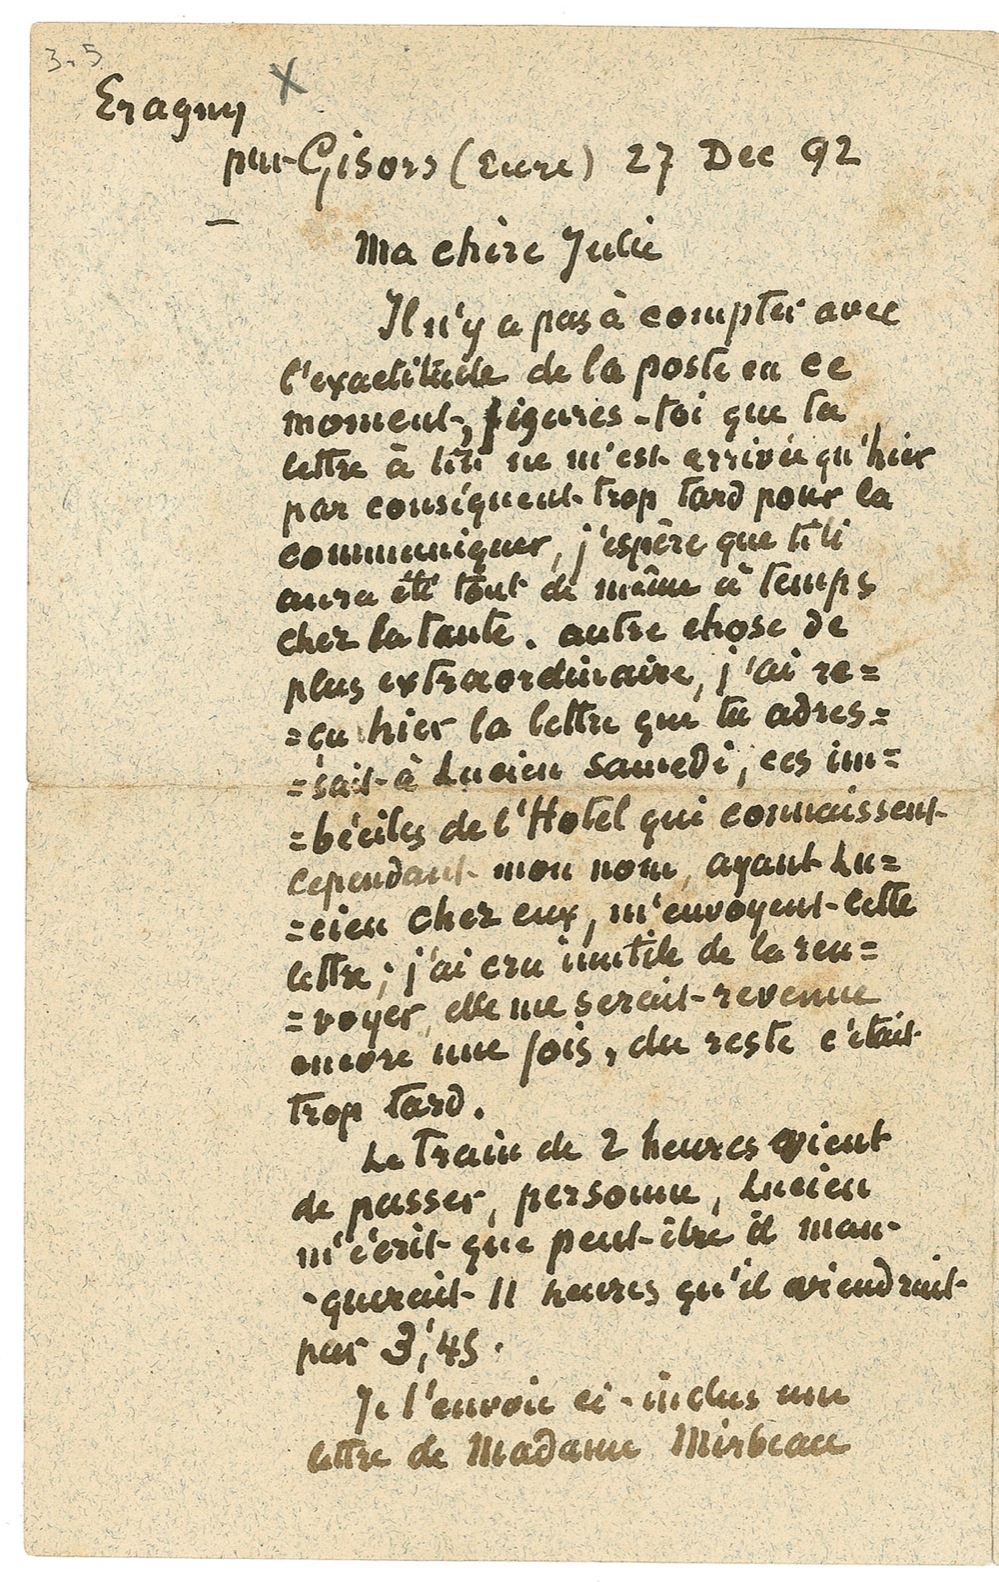 3.5
X
Eragny
par Gisors (Eure) 27 Dec 92
Ma chère Julie
Il n'y a pas à compter avec
l'exactitude de la poste en ce
moment, figures-toi que ta
lettre à titi ne m'est arrivée qu'hier
par conséquent trop tard pour la
communiquer, j'espère que titi
aura été tout de même à temps
chez la tante. autre chose de
plus extraordinaire, j'ai re=
=çu hier la lettre que tu adres=
=sait à Lucien samedi, ces im=
=béciles de l'Hotel qui connaissent
cependant mon nom, ayant Lu=
=cien chez eux, m'envoyent cette
lettre; j'ai cru inutile de la ren=
=voyer, elle me serait revenue
encore une fois, du reste c'était
trop tard.
Le Train de 2 heures vient
de passer, personne, Lucien
m'écrit que peut-être il man-
-querait 11 heures qu'il viendrait
par 3,45.
Je t'envoie ci-inclus une
lettre de Madame Mirbeau